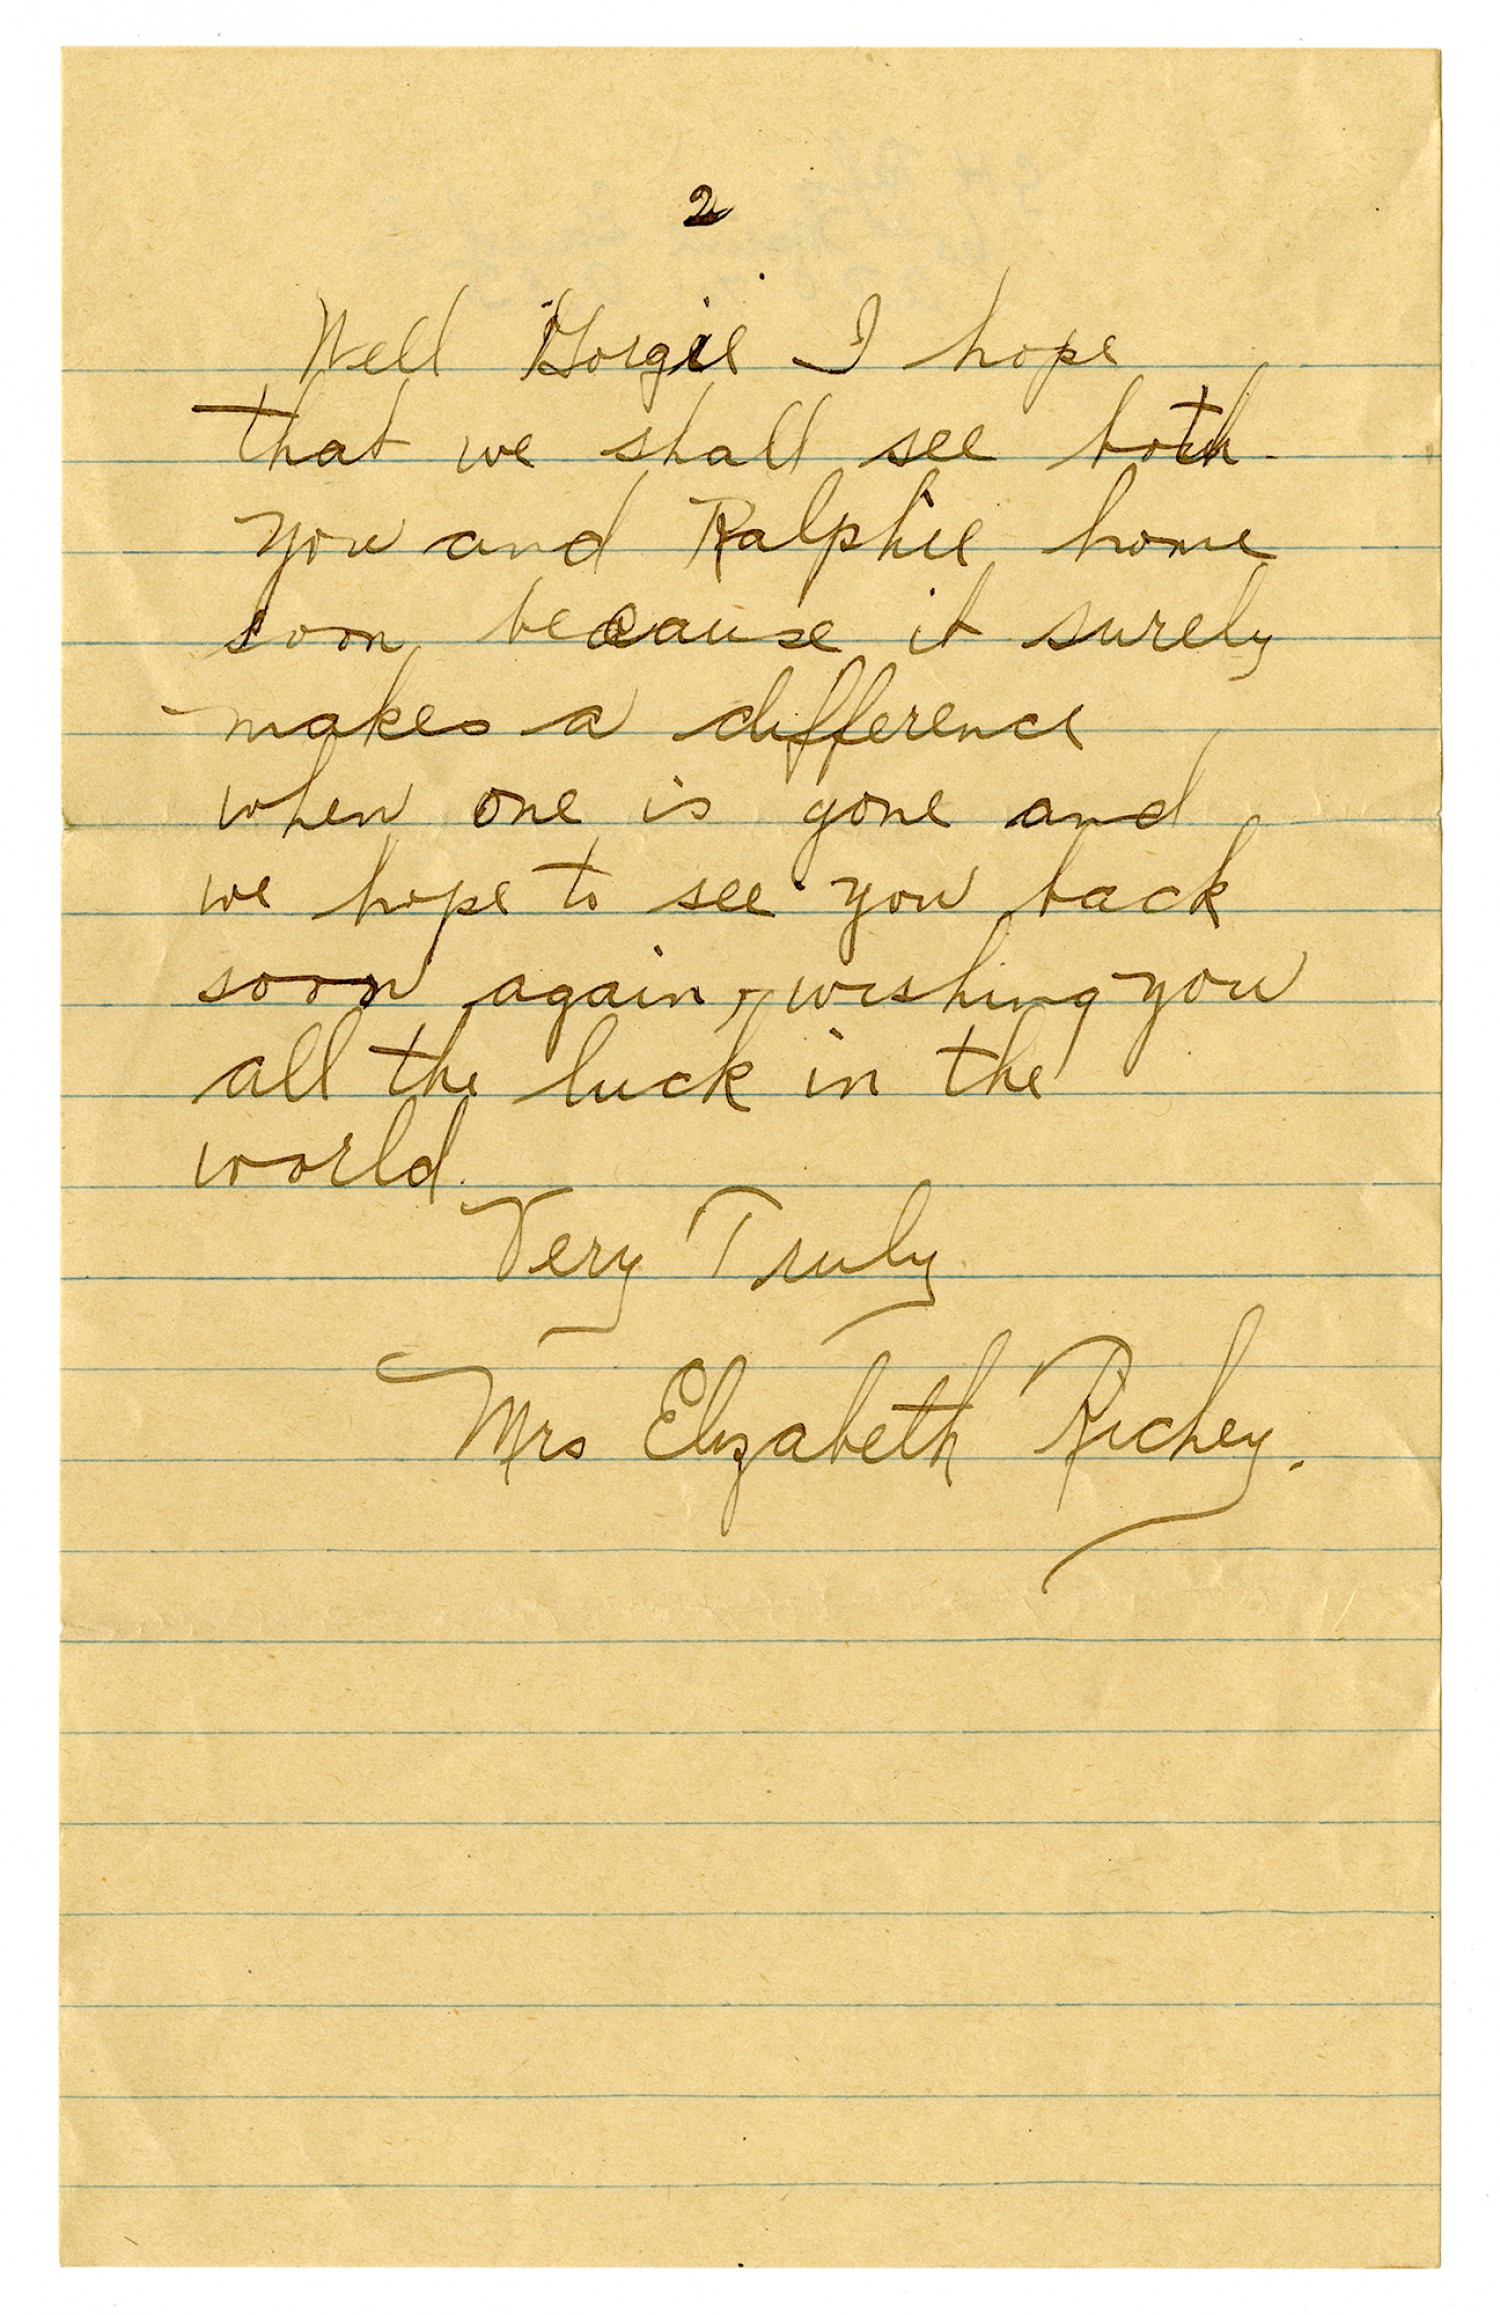 2
Well Gorgie I hope
that we shall see both
you and Ralphie home
soon because it surely
makes a difference
when one is gone and
we hope to see you back
soon again, wishing you
all the luck in the
world.
Very Truly
Mrs Elizabeth Richey.